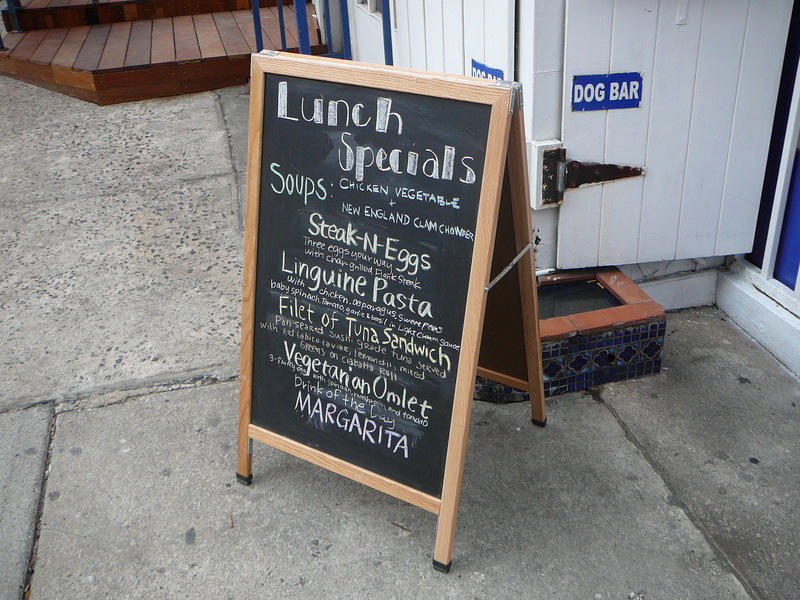 Lunch
Specials
Soups: CHICKEN VEGETABLE
+
NEW ENGLAND CLAM CHOWDER
Steak-N-Eggs
Three eggs your way
with char-grilled Flank Steak
Linguine Pasta
with chicken, asparagus, sweet peas
baby spinach, tomato, garlic & basil in Light Cream Sauce
Filet of Tuna Sandwich
Pan seared Sushi grade tuna served
with Red tobico caviar, lemon aioli, mixed
Greens on Ciabatta Roll
Vegetarian Omlet
3- egg with spinach, mushroom and tomato
Drink of the Day
MARGARITA
DOG BAR
DOG BAR